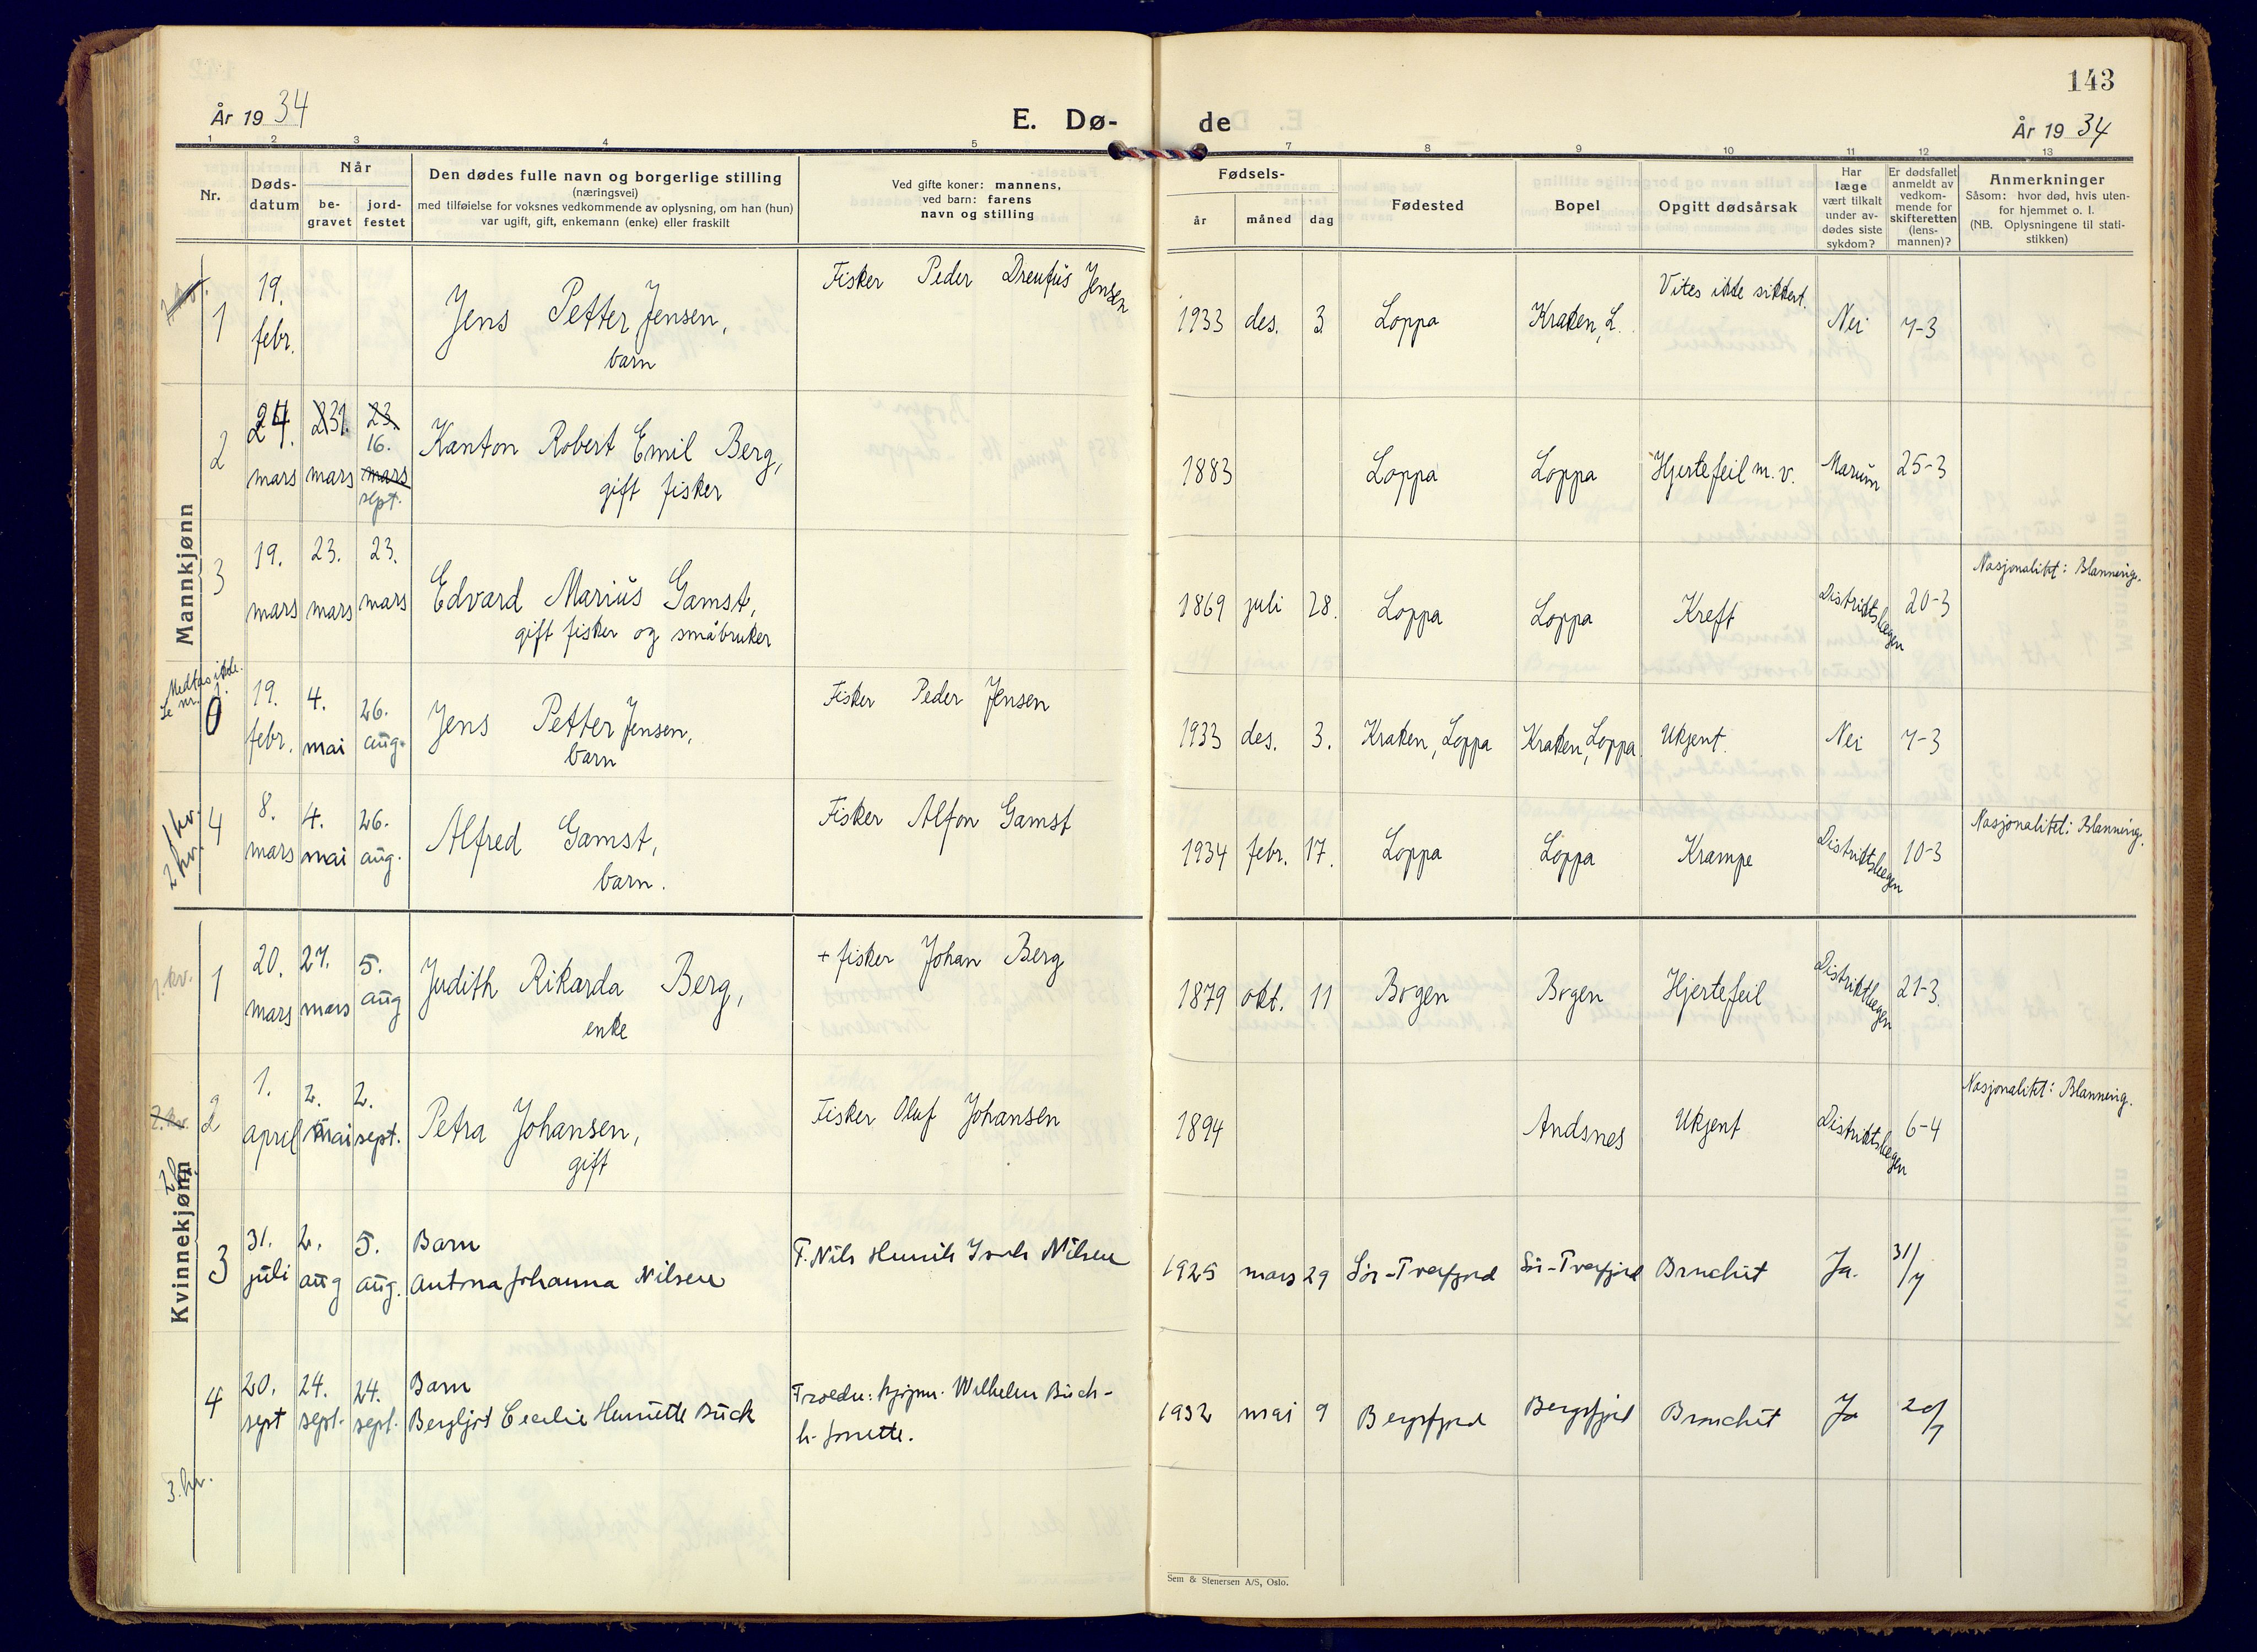 143
År 19 34
E. Dø-
de
År 19 34
1 2 3 4 5 7 8 9 10 11 12 13
Nr.
Døds-
datum
Når
be-
gravet
jord-
festet
Den dødes fulle navn og borgerlige stilling
(næringsvei)
med tilføielse for voksnes vedkommende av oplysning, om han (hun)
var ugift, gift, enkemann (enke) eller fraskilt
Ved gifte koner: mannens,
ved barn: farens
navn og stilling
Fødsels-
år
måned
dag
Fødested
Bopel
Opgitt dødsårsak
Har
læge
vært tilkalt
under av-
dødes siste
sykdom?
Er dødsfallet
anmeldt av
vedkom-
mende for
skifteretten
(lens-
mannen)?
Anmerkninger
Såsom: hvor død, hvis uten-
for hjemmet o. l.
(NB. Oplysningene til stati-
stikken)
Mannkjønn
1
19.
febr.
Jens Petter Jensen,
barn
Fisker Peder Dreufus Jensen
1933 des. 3 Loppa Kraken, L.
Vites ikke sikkert.
Nei 7-3
2
24.
mars
31.
mars
23.
16.
mars
sept.
Kanton Robert Emil Berg,
gift fisker
1883 Loppa Loppa Hjertefeil m. v. Marum 25-3
3
19.
mars
23.
mars
23.
mars
Edvard Marius Gamst,
gift fisker og småbruker
1869 juli 28. Loppa Loppa Kreft Distriktslægen 20-3
Nasjonalitet: Blanning.
Medtas ikke.
Se nr. 1.
0
19.
febr.
4.
mai
26.
aug.
Jens Petter Jensen,
barn
Fisker Peder Jensen
1933 des. 3. Kraken, Loppa Kraken, Loppa Ukjent. Nei 7-3
1 kv.
2 kv.
4
8.
mars
4.
mai
26.
aug.
Alfred Gamst,
barn.
Fisker Alfon Gamst
1934 febr. 17. Loppa Loppa Krampe Distriktslægen 10-3
Nasjonalitet: Blanning.
Kvinnekjønn
1. kv.
1
20.
mars
27.
mars
5.
aug
Judith Rikarda Berg,
enke
+ fisker Johan Berg
1879 okt. 11 Bogen Bogen Hjertefeil Distriktlægen 21-3.
2. kv.
2
1.
april
2.
mai
2.
sept.
Petra Johansen,
gift
Fisker Oluf Johansen
1894 Andsnes Ukjent Distriktslægen 6-4
Nasjonalitet: Blanning.
3
31.
juli
2.
aug
5.
aug.
Barn
Antona Johanna Nilsen
F. Nils Henrik Nilsen
1925 mars 29 Sör-Tverfjord Sör-Tverfjord Bronchit Ja. 31/7
4
20.
sept
24.
sept.
24.
sept.
Barn
Bergljot Cecilie Henriette Buck
Wilhelm Buch-
1932 mai 9 Bergsfjord Bergsfjord Bronchit Ja
3. kv.
Sem & Stenersen A/S, Oslo.